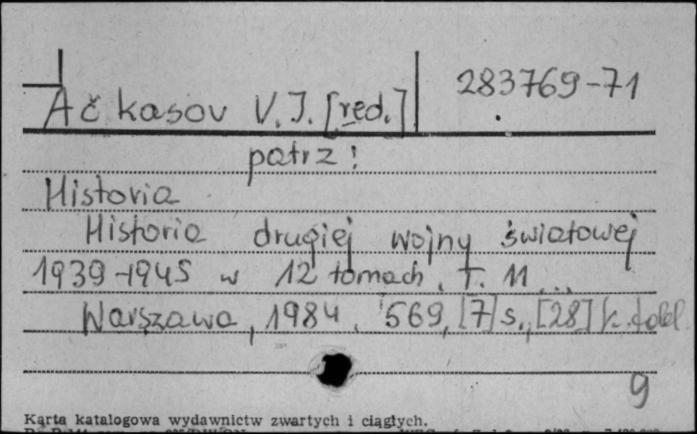 283769-71
Ačkasov V.J. [red.]
patrz:
Historia
Historia drugiej wojny światowej
1939-1945 w 12 tomach. T. 11...
Warszawa, 1984. 569, [7] s., [28] k. tabl.
9
Karta katalogowa wydawnictw zwartych i ciągłych.